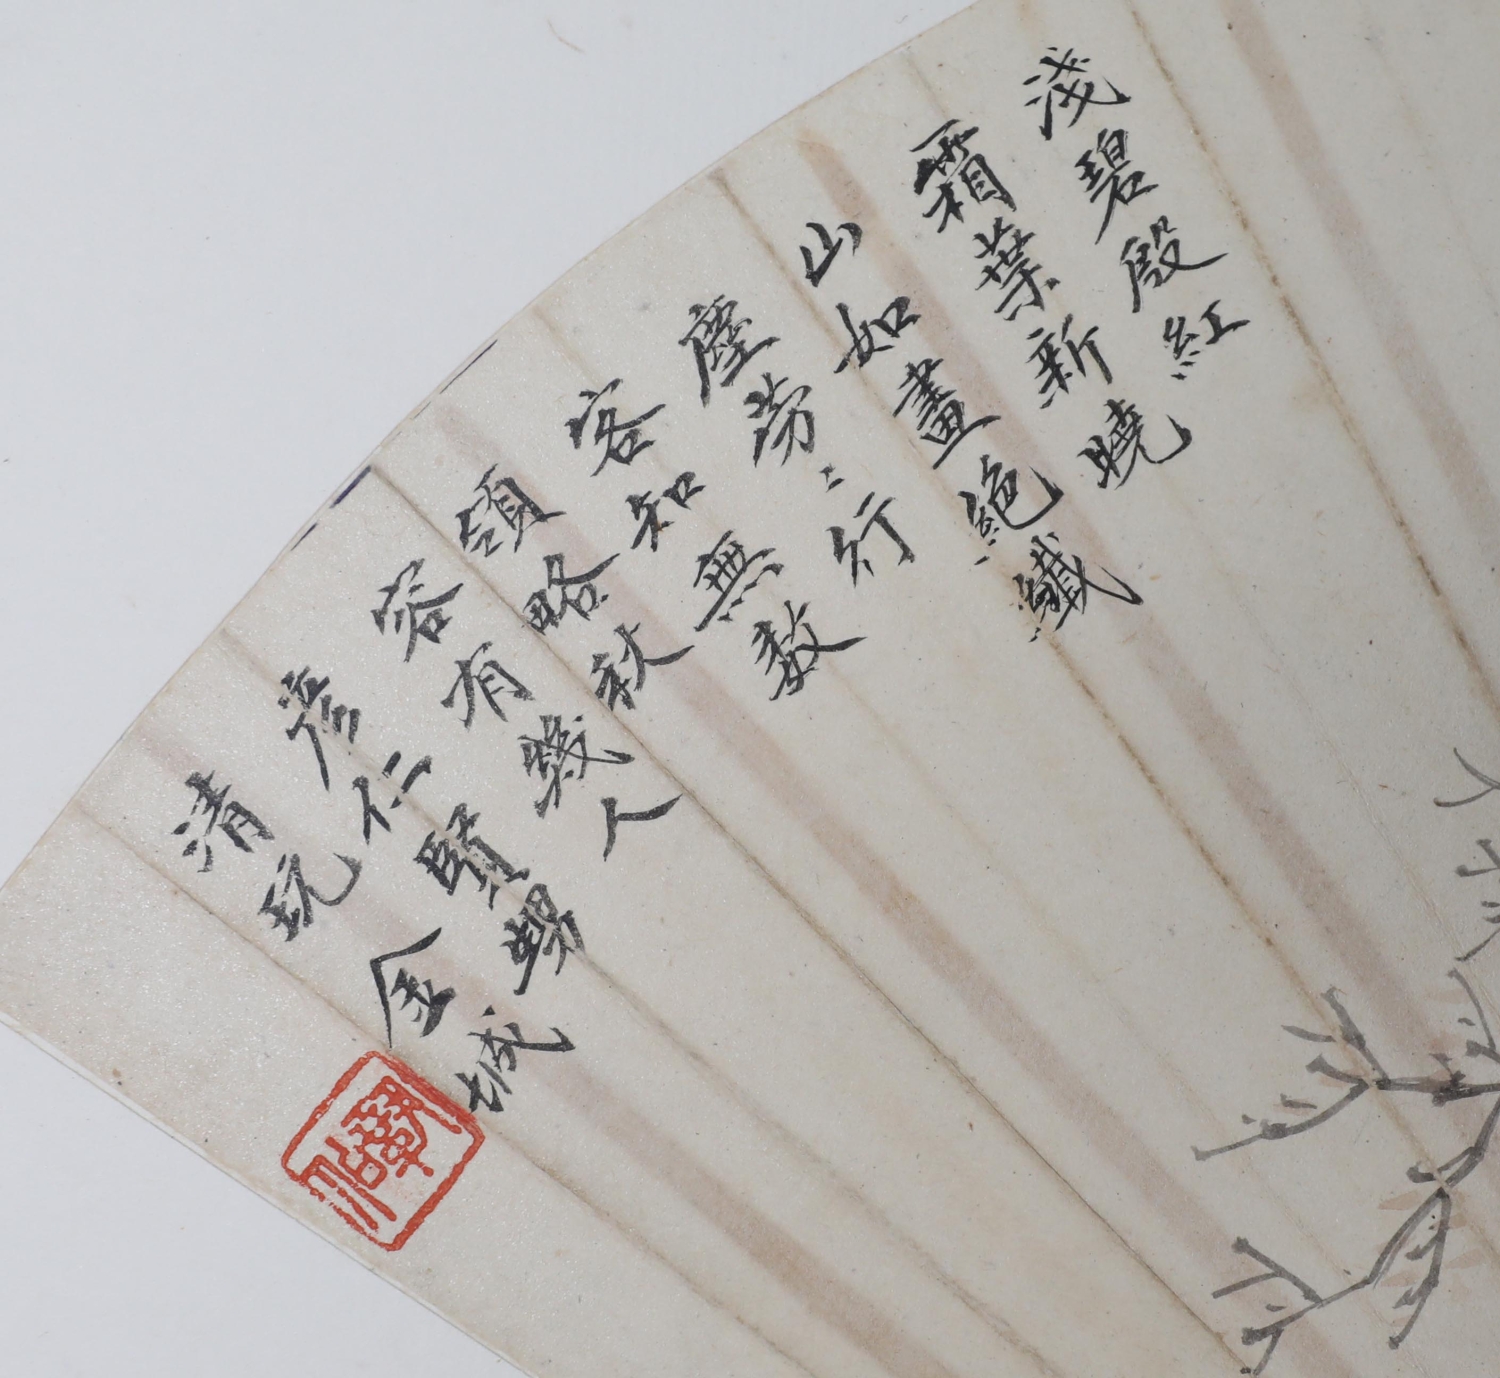 淺碧殷紅
霜葉新曉
山如畫絕纖
塵勞〻行
客知無數
領略秋
容有幾人
彥仁賢甥
清玩 金城